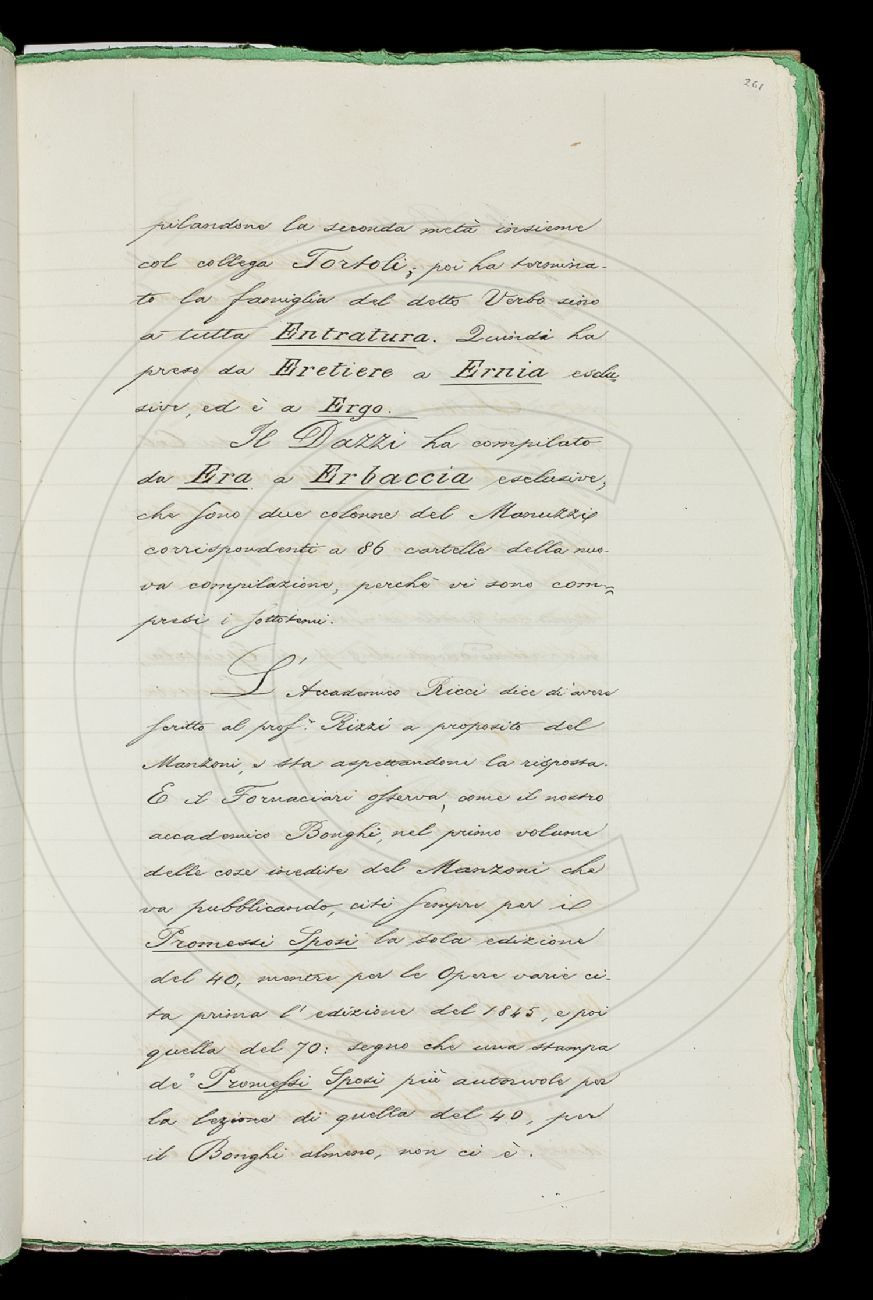 261
pilandone la seconda metà insieme
col collega Tortoli; poi ha termina-
to la famiglia del detto Verbo sino
a tutta Entratura. Quindi ha
preso da Eretiere a Ernia esclu-
sive, ed è a Ergo.
Il Dazzi ha compilato
da Era a Erbaccia esclusive,
che sono due colonne del Manuzzi
corrispondenti a 86 cartelle della nuo-
va compilazione, perchè vi sono com-
presi i sottotemi.
L'Accademico Ricci dice di avere
scritto al prof. Rizzi a proposito del
Manzoni, e sta aspettandone la risposta.
E il Fornaciari osserva, come il nostro
accademico Bonghi, nel primo volume
delle cose inedite del Manzoni che
va pubblicando, citi sempre per i
Promessi Sposi la sola edizione
del 40, mentre per le Opere varie ci-
ta prima l'edizione del 1845, e poi
quella del 70: segno che una stampa
de' Promessi Sposi più autorevole per
la lezione di quella del 40, per
il Bonghi almeno, non ci è.